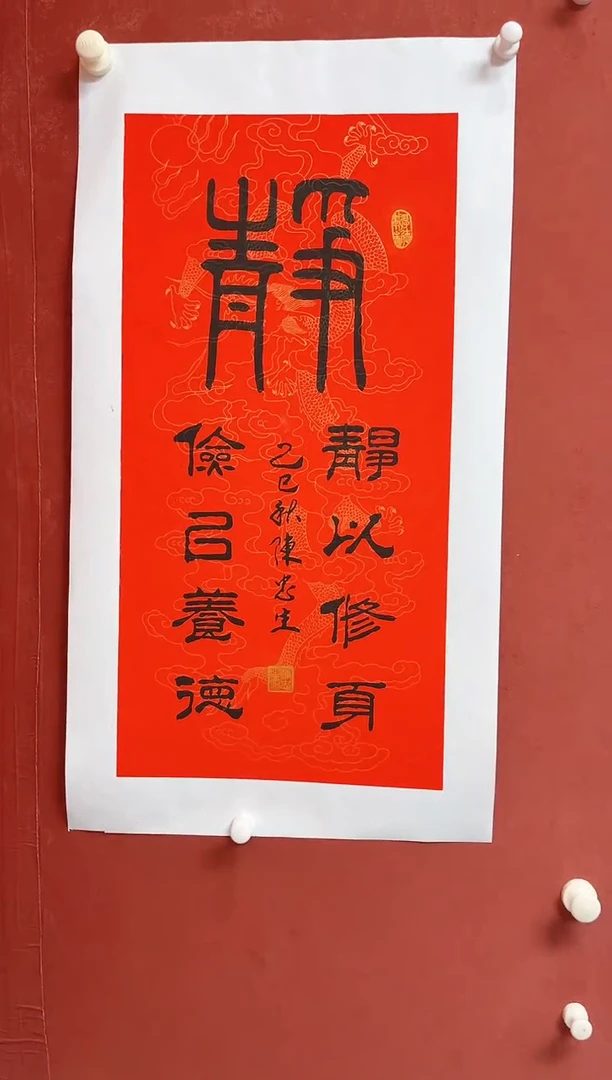 靜
靜以修頁
儉㠯養德
乙巳秋陳忠生